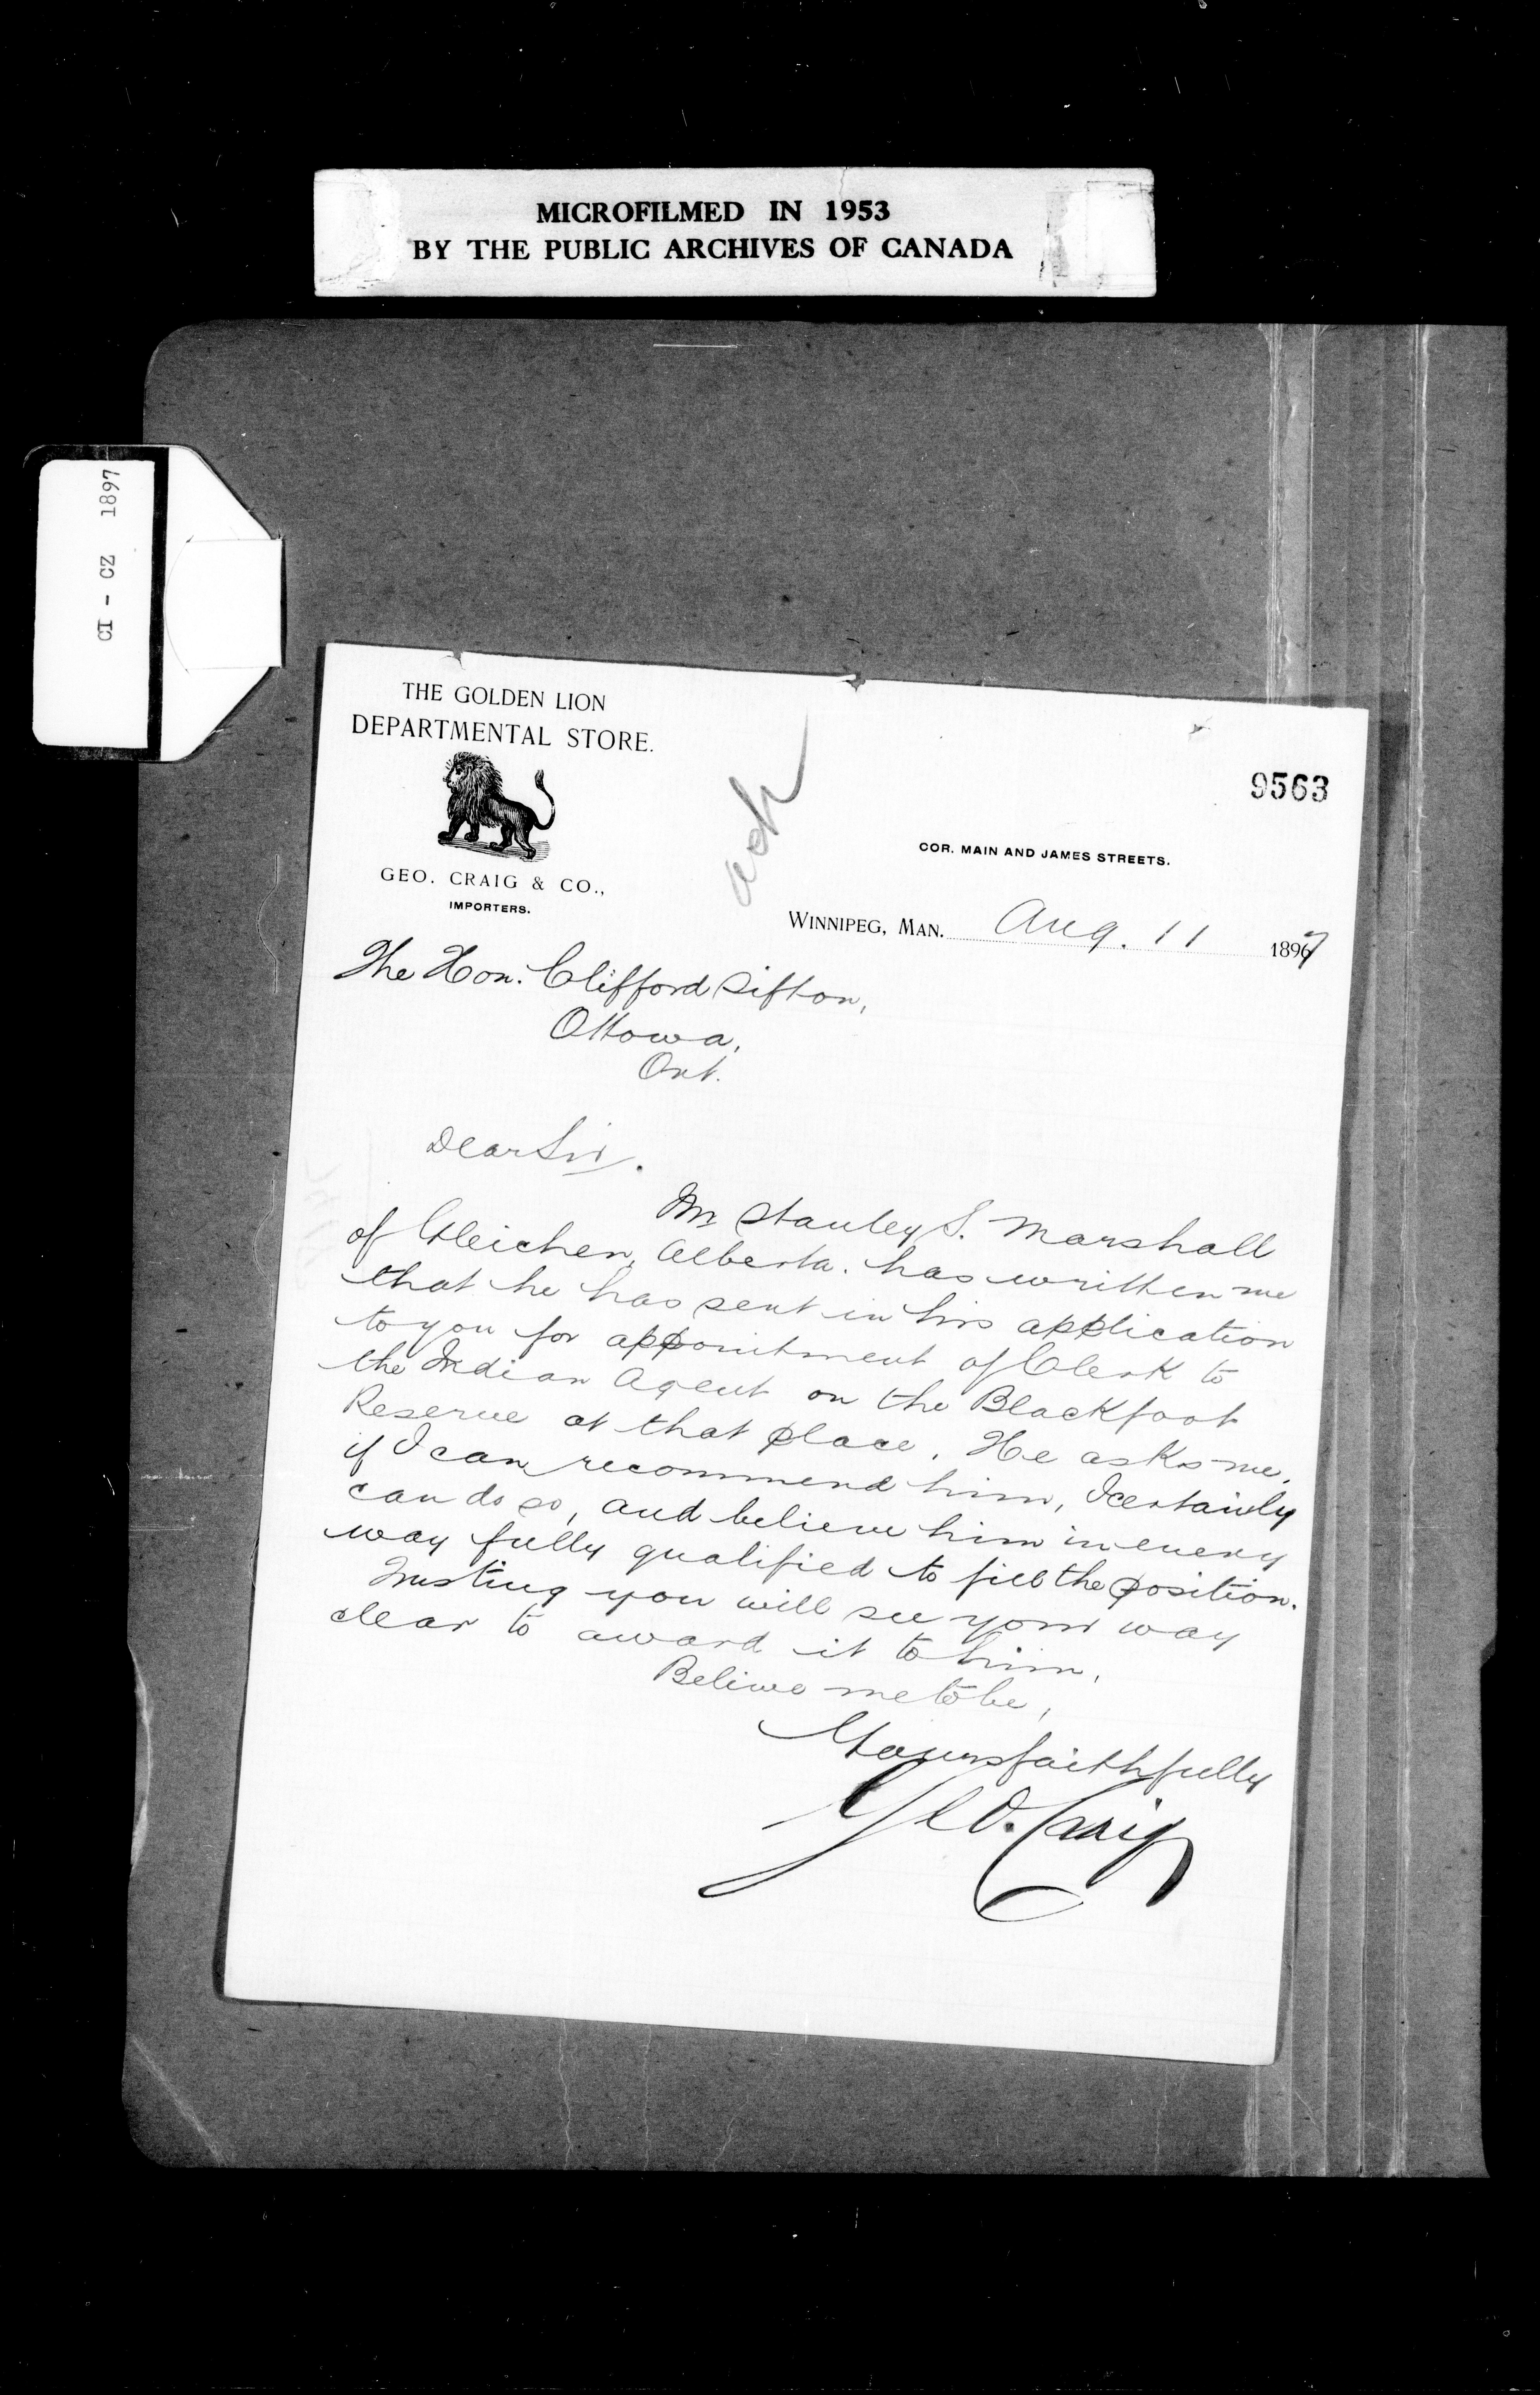 MICROFILMED IN 1953
BY THE PUBLIC ARCHIVES OF CANADA
CI - CZ 1897
THE GOLDEN LION
DEPARTMENTAL STORE.
GEO. CRAIG & CO.,
IMPORTERS.
ack
9563
COR. MAIN AND JAMES STREETS.
WINNIPEG, MAN. Aug. 11 1897
The Hon. Clifford Sifton,
Ottowa,
Ont.
Dear Sir.
Mr Stanley S. Marshall
of Gleichen, Alberta. has written me
that he has sent in his application
to you for appointment of Clerk to
the Indian Agent on the Blackfoot
Reserve at that place. He asks me,
if I can recommend him, I certainly
can do so, and believe him in every
way fully qualified to fill the position.
Trusting you will see your way
clear to award it to him,
Belive me to be,
Yours faithfully
Geo. Craig